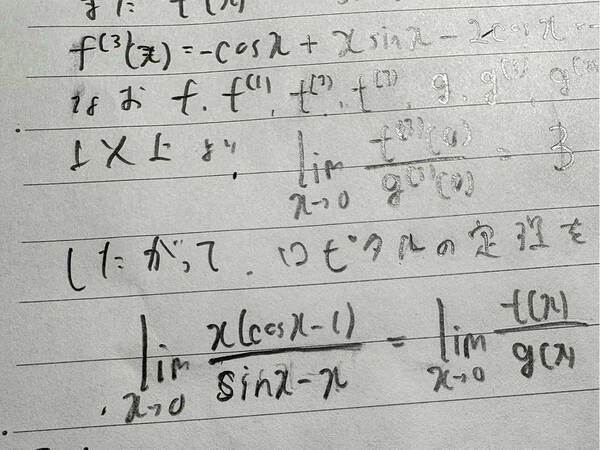 また f(x)
f⁽³⁾(x) = -cosx + x sinx - 2cosx
なお f, f⁽¹⁾, f⁽²⁾, f⁽³⁾, g, g⁽¹⁾, g⁽²⁾
以上より, lim x→0 f⁽³⁾(x)/g⁽³⁾(x) = 3
したがって, ロピタルの定理を
lim x→0 x(cosx-1)/sinx-x = lim x→0 f(x)/g(x)